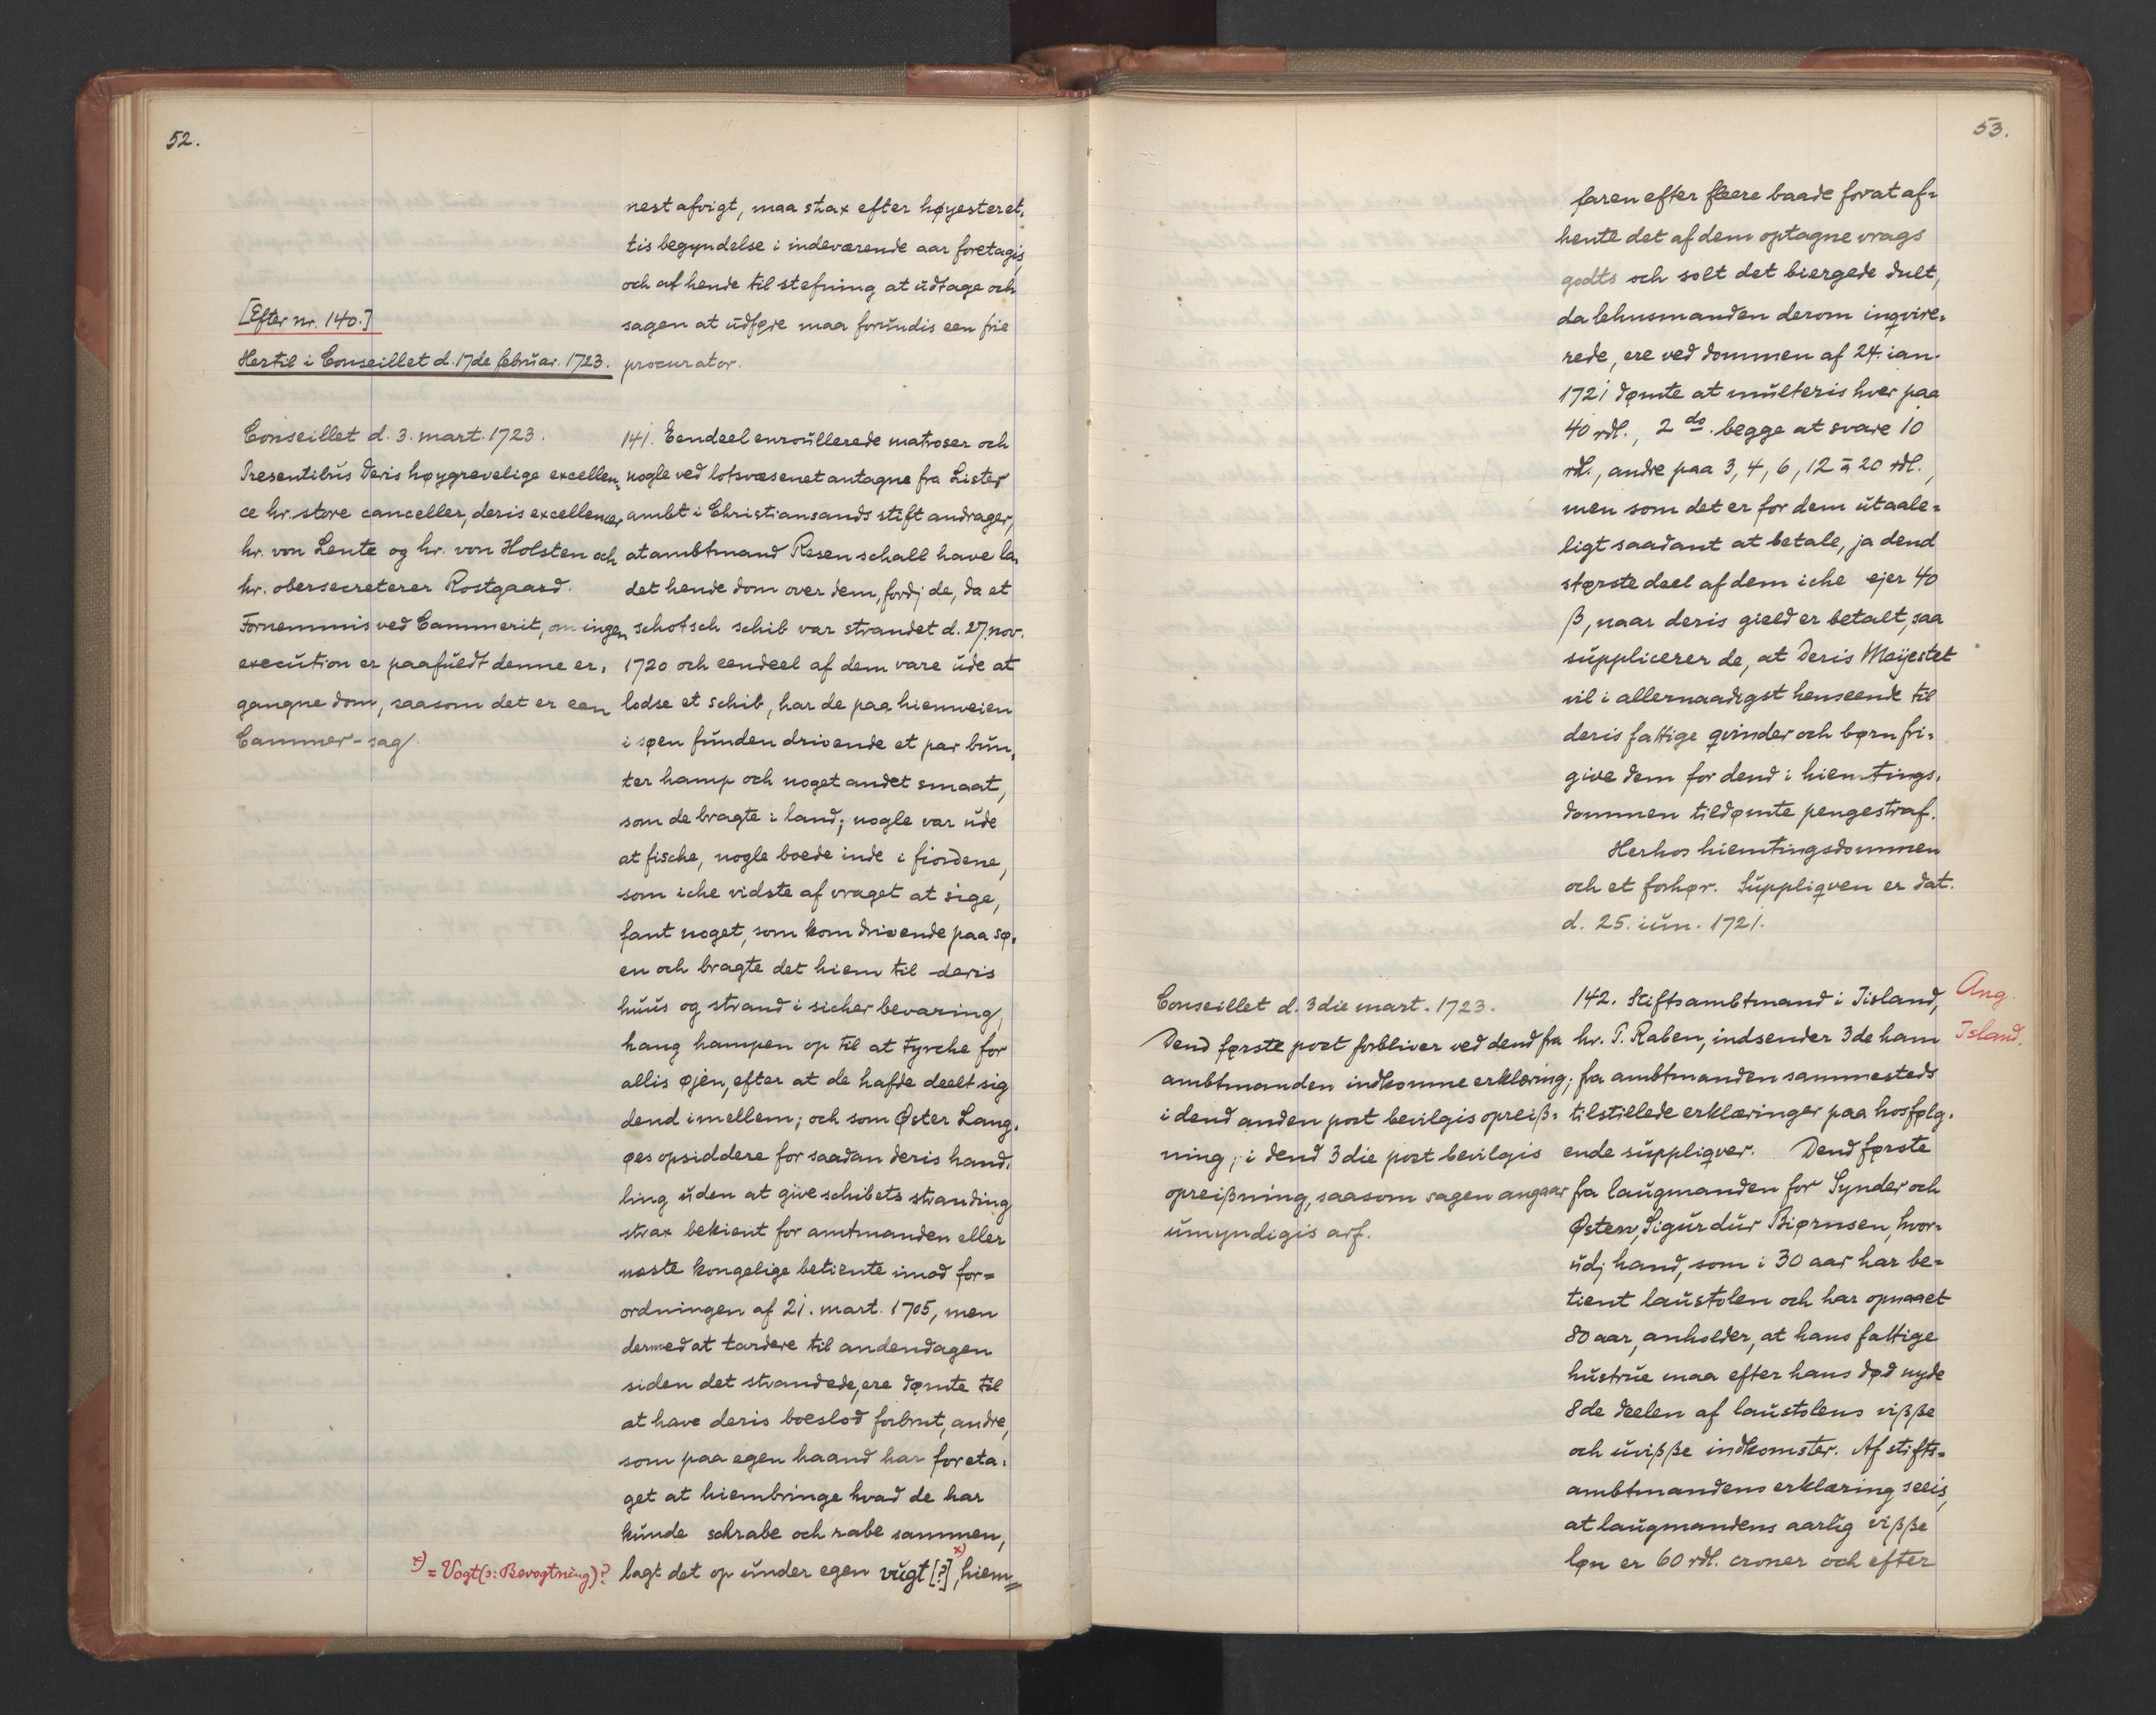 52.
[Efter nr. 140.]
Hertil i Conseillet d. 17de februar. 1723.
Conseillet d. 3. mart. 1723.
Presentibus deris høygrevelige excellen-
ce hr. store canceller, deris excellencer
hr. von Lente og hr. von Holsten och
hr. obersecreterer Rostgaard.
Fornemmis ved Cammerit, om ingen
execution er paafuldt denne er-
gangne dom, saasom det er een
Cammer-sag.
nest afvigt, maa strax efter høyesteret-
tis begyndelse i indeværende aar foretagis,
och af hende til stefning at udtage och
sagen at udføre maa forundis een frie
procurator.
141. Eendeel enroullerede matroser och
nogle ved lotsvæsenet antagne fra Lister
ambt i Christiansands stift andrager,
at ambtmand Resen schall have la-
det hende dom over dem, fordj de, da et
schotsch schib var strandet d. 27. nov.
1720 och eendeel af dem vare ude at
lodse et schib, har de paa hiemveien
i søen funden drivende et par bun-
ter hamp och noget andet smaat,
som de bragte i land; nogle var ude
at fische, nogle boede inde i fiordene,
som iche vidste af vraget at sige,
fant noget, som kom drivende paa sø-
en och bragte det hiem til deris
huus og strand i sicher bevaring,
hang hampen op til at tyrche for
allis øjen, efter at de hafde deelt sig
dend imellem; och som Øster Lang-
øes opsiddere for saadan deris hand-
ling uden at give schibets stranding
strax bekient for amtmanden eller
neste kongelige betiente imod for-
ordningen af 21. mart. 1705, men
dermed at tardere til andendagen
siden det strandede, ere dømte til
at have deris boeslod forbrut, andre,
som paa egen haand har foreta-
get at hiembringe hvad de har
kunde schrabe och rabe sammen,
lagt det op under egen vugt [?] x), hiem-
x) = Vogt (ɔ: Bevogtning)?
53.
faren efter fleere baade for at af-
hente det af dem optagne vrags
godts och solt det biergede dult,
da lehnsmanden derom inqvire-
rede, ere ved dommen af 24. ian.
1721 dømte at multeris hver paa
40 rdl., 2 do. begge at svare 10
rdl., andre paa 3, 4, 6, 12 à 20 rdl.,
men som det er for dem utaale-
ligt saadant at betale, ja dend
største deel af dem iche ejer 40
β, naar deris gield er betalt, saa
supplicerer de, at Deris Maÿestet
vil i allernaadigst henseende til
deris fattige qvinder och børn fri-
give dem for dend i hiemtings-
dommen tildømte pengestraf.
Herhos hiemtingsdommen
och et forhør. Suppliqven er dat.
d. 25. iun. 1721.
Conseillet d. 3die mart. 1723.
Dend første post forbliver ved dend fra
ambtmanden indkomne erklæring;
i dend anden post bevilgis opreiß-
ning; i dend 3die post bevilgis
opreißning, saasom sagen angaar
umyndigis arf.
142. Stiftsambtmand i Iisland,
hr. P. Raben, indsender 3de ham
fra ambtmanden sammesteds
tilstillede erklæringer paa hosfølg-
ende suppliqver. Dend første
fra laugmanden for Synder och
Østen, Sigurdur Biørnsen, hvor-
udj hand, som i 30 aar har be-
tient laustolen och har opnaaet
80 aar, anholder, at hans fattige
hustrue maa efter hans død nyde
8de deelen af laustolens vißße
och uvißße indkomster. Af stifts-
ambtmandens erklæring seeis,
at laugmandens aarlig vißße
løn er 60 rdl. croner och efter
Ang.
Island.